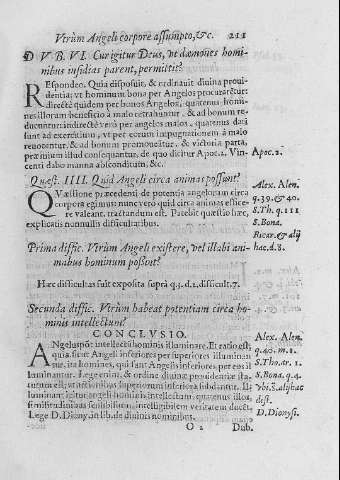 Vtrùm Angeli corpore assumpto, &c. 211
D V B. VI. Cur igitur Deus, vt dæmones homi-
nibus insidias parent, permittit?
REspondeo. Quia disposuit, & ordinauit diuina proui-
dentia; vt hominum bona per Angelos procurarẽtur:
directè quidem per bonos Angelos, quatenus, homi-
nes illorum beneficio à malo retrahuntur, & ad bonum re-
ducuntur: indirectè verò per angelos malos, quatenus dati
sunt ad exercitium, vt per eorum impugnationem à malo
reuocentur, & ad bonum promoueãtur, & victoria parta,
præmium illud consequantur, de quo dicitur Apoc. 2. Vin-
centi dabo manna absconditum, &c.
Apoc. 2.
Quæst. IIII. Quid Angeli circa animas possunt?
QVæstione præcedenti de potentia angelorum circa
corpora egimus: nunc verò quid circa animas effice-
re valeant, tractandum est. Patebit quæstio hæc,
explicatis nonnullis difficultatibus.
Alex. Alen.
q. 39. & 40.
S. Th. q. 111
S. Bona.
Ricar. & alij
hac. d. 8.
Prima diffic. Vtrùm Angeli existere, vel illabi ani-
mabus hominum possint?
Hæc difficultas fuit exposita suprà q. 3. d. 1. difficult. 7.
Secunda diffic. Vtrùm habeat potentiam circa ho-
minis intellectum?
CONCLVSIO.
ANgelus põt intellectũ hominis illuminare. Et ratio est;
quia sicut Angeli inferiores per superiores illuminan-
tur, ita homines, qui sunt Angelis inferiores, per eos il-
luminantur. Lege enim, & ordine diuinæ prouidentiæ sta-
tutum est; vt actionibus superiorum inferiora subdantur. Il-
luminant igitur angeli hominis intellectum, quatenus illos,
similitudinibus sensibilium, intelligibilem veritatem docẽt.
Lege D. Dionys. in lib. de diuinis nominibus.
Alex. Alen.
S. Tho. ar. 1.
S. Bona. q. 4.
vbi. S. alijque
dist.
D. Dionysi.
O 2 Dub.